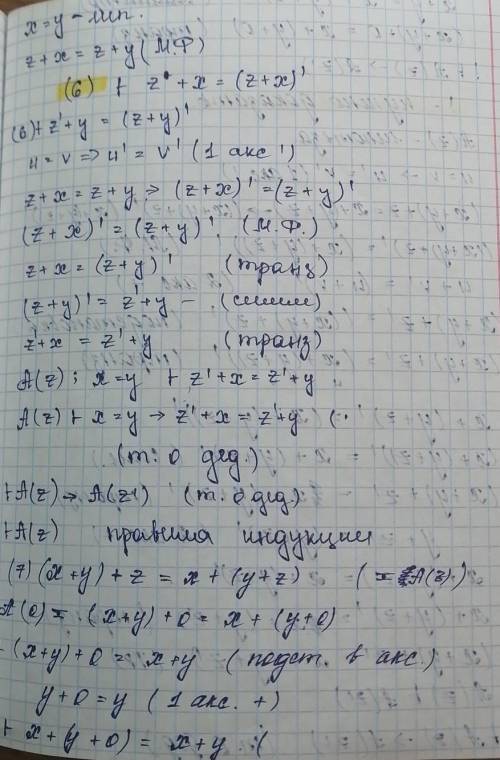 x = y – гип.
z + x = z + y (М.Ф)
(6) ⊢ z' + x = (z + x)'
(6) ⊢ z' + y = (z + y)'
u = v => u' = v' (1 акс ')
z + x = z + y → (z + x)' = (z + y)'
(z + x)' = (z + y)' (М.Ф.)
z + x = (z + y)' (транз)
(z + y)' = z' + y – (симм)
z' + x = z' + y (транз)
A(z); x = y ⊢ z' + x = z' + y
A(z) ⊢ x = y → z' + x = z' + y (·
(т. о дед.)
⊢ A(z) → A(z1) (т. о дед.)
⊢ A(z) правила индукции
(7) (x + y) + z = x + (y + z) (= A(z).)
A(0) = (x + y) + 0 = x + (y + 0)
(x + y) + 0 = x + y (подст. в акс.)
y + 0 = y (1 акс. +)
⊢ x + (y + 0) = x + y (